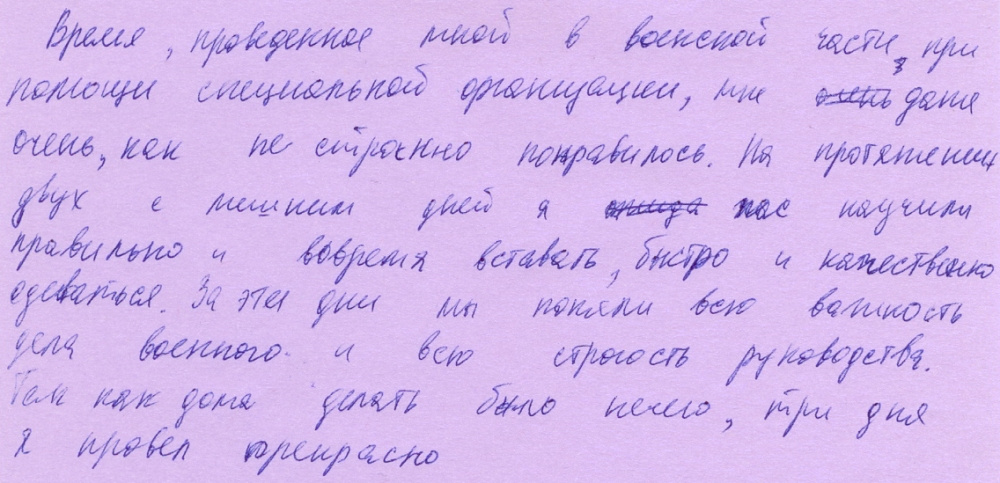 Время, проведенное мной в воинской части, при
помощи специальной организации, мне очень даже
очень, как не странно понравилось. На протяжении
двух с лишним дней я нас научили
правильно и вовремя вставать, быстро и качественно
одеваться. За эти дни мы поняли всю важность
дела военного и всю строгость руководства.
Так как дома делать было нечего, три дня
я провел прекрасно